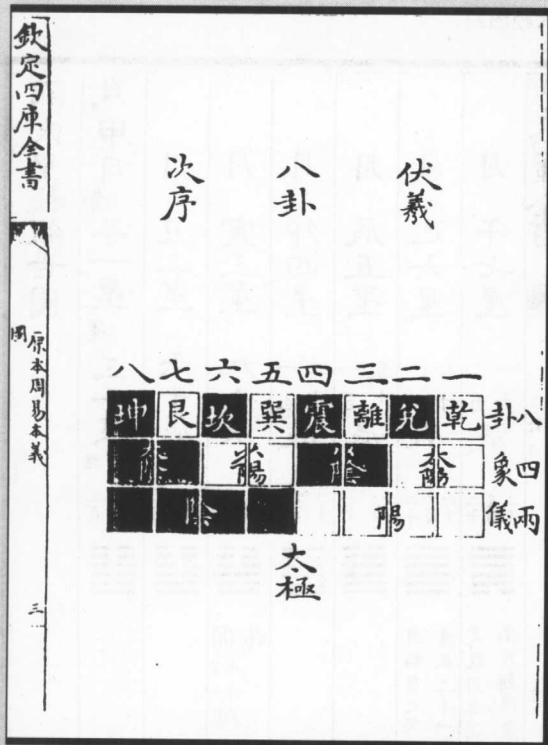 伏羲
八卦
次序
一二三四五六七八
八卦
乾兌離震巽坎艮坤
四象
太陽
少陰
少陽
太陰
兩儀
陽
陰
太極
欽定四庫全書
原本周易本義
圖
三